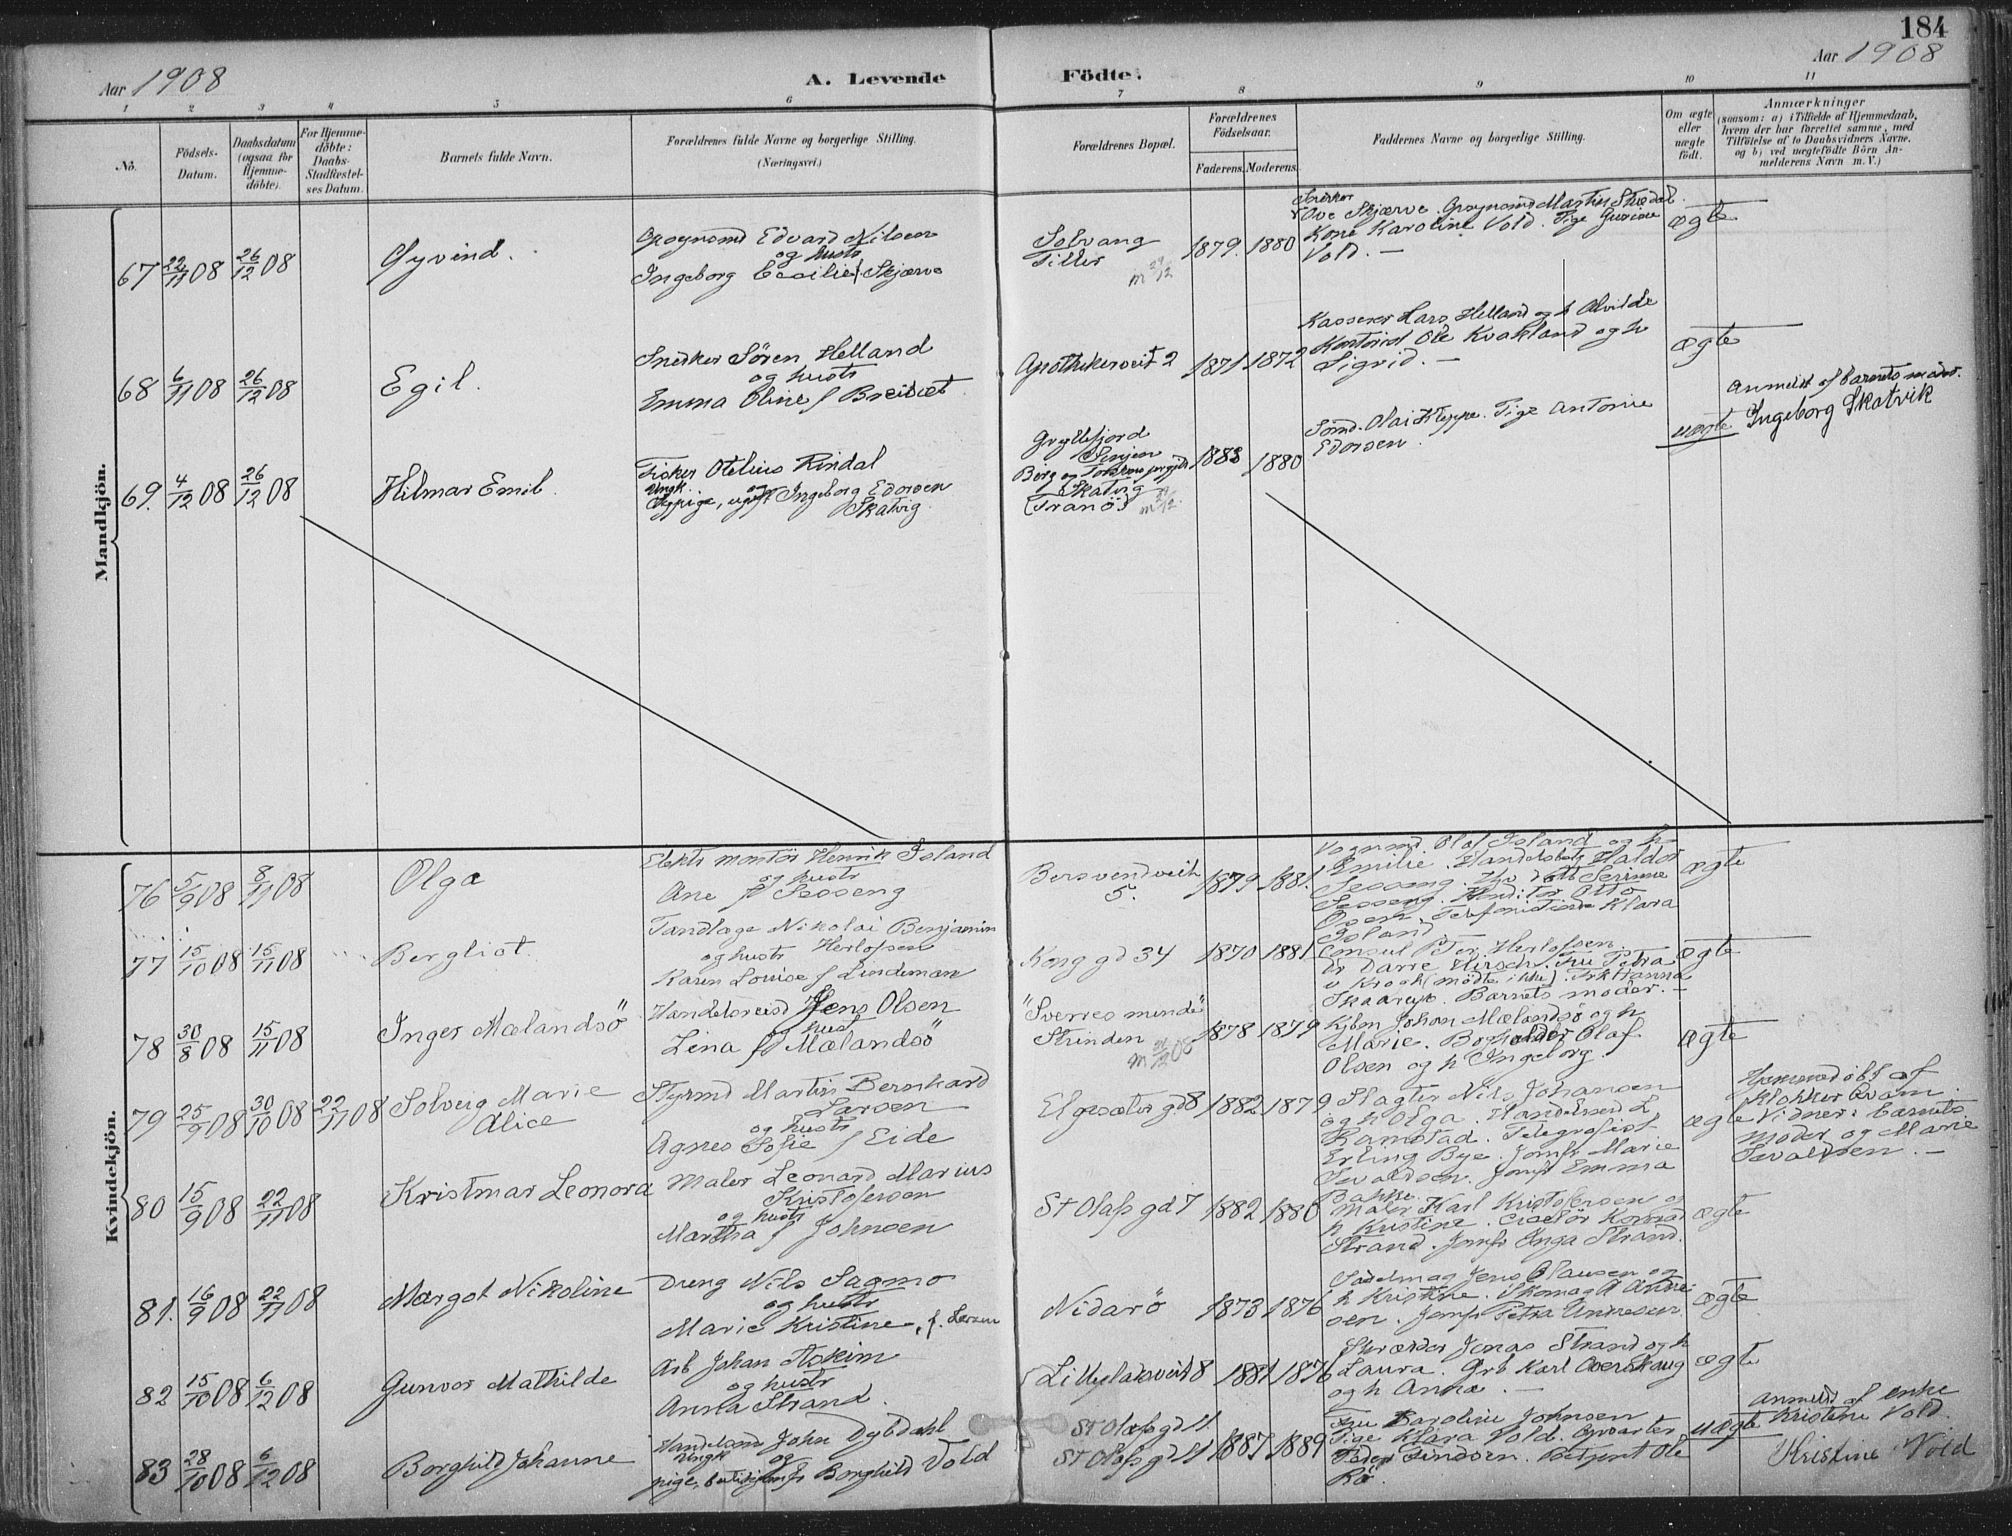 184
Aar 1908
A. Levende Födte.
Aar 1908
1 2 3 4 5 6 7 8 9 10 11
No.
Födsels-
Datum.
Daabsdatum
(ogsaa for
Hjemme-
döbte).
For Hjemme-
döbte:
Daabs-
Stadfæstel-
ses Datum.
Barnets fulde Navn.
Forældrenes fulde Navne og borgerlige Stilling.
(Næringsvei.)
Forældrenes Bopæl.
Forældrenes
Födselsaar.
Faderens. Moderens.
Faddernes Navne og borgerlige Stilling.
Om ægte
eller
uægte
födt.
Anmærkninger
(saasom: a) i Tilfælde af Hjemmedaab,
hvem der har forrettet samme, med
Tilföielse af to Daabsvidners Navne,
og b) ved uægtefödte Börn An-
melderens Navn m. V.)
Mandkjön.
67 22/11 08 26/12 08
Øyvind.
Edvard Nilsen
og hustr
Ingeborg Cecilie f Skjærve
Solvang
Tiller
m 29/12
1879. 1880
Snekker
Ove Skjærve. Martin
Kone Karoline Vold. Pige
Vold. —
ægte
68 6/11 08 26/12 08
Egil.
Snedker Sören Helland
og hustr
Emma Oline f Breivet
Apothekerveit 2
1871 1872
Kasserer Lars Helland og h Alvilde
Kontorist Ole Kvakland og h
Sigrid. —
ægte
69. 4/12 08 26/12 08
Hilmar Emil.
Fisker Otelius Rindal
Ungk. og
pige, ugift Ingeborg Edvrsen
Skatvig
Gryllefjord
Senjen
Berg og Torsken prgjld
Skatvig
(Tranö)
m 29/12.
1888 1880
Sömd. Olai Kleppe. Pige Antonie
Edvrsen.
uægte
Anmeldt af barnets moder.
Ingeborg Skatvik
Kvindekjön.
76 5/9 08 8/11 08
Olga
Elektr montör Henrik Island
og hustr
Ane f Sesseng
Bersvendveit
5.
1879 1881.
Vognmd. Olaf Island og h
Emilie. Handelsbetj Haldor
Sesseng. Serine
Sesseng. Konditor Otto
Telefonistinde Klara
Island —
ægte
77 15/10 08 15/11 08
Bergliot.
Tandlæge Nikolai Benjamin
og hustr Herlofsen
Karen Louise f Lindeman
Kong gd 34
1870 1881
Consul Herlofsen.
Dr Darre Hirsch. Fru Petra
v Krogh (mödte ikke). Frk Hanna
Skaarup. Barnets moder. —
ægte
78 30/8 08 15/11 08
Inger Mælandsö
Handelsreisd Jens Olsen
og hust
Lina f Mælandsö
"Sverres minde"
Strinden
m 08
1878 1879
Kjbm Johan Mælandsö og h
Marie. Bogholder Olaf
Olsen og h Ingeborg.
ægte
79 25/9 08 30/10 08 22/11 08
Solveig Marie
Alice
Styrmd Martin Bernhard
Larsen
og hustr
Agnes Sofie f Eide
Elgesæter gd 8
1882 1879
Slagter Nils Johansen
og h Olga. Handelsreisd L
Ramstad. Telegrafist
Erling Bye. Jomfr Marie
Sevaldsen. Jomfr Emma
Bakke.
ægte
Hjemmedöbt af
Klokker Kvam.
Vidner: barnets
moder og Marie
Sevaldsen. —
80 15/9 08 22/11 08
Kristmar Leonora
Maler Leonard Marius
Kristofersen
og hustr
Martha f Johnsen
St Olafs gd 7
1882 1880
Maler Karl Kristofersen og
h Kristine. Konrad
Strand. Jomfr Inga Strand.
ægte
81. 16/9 08 22/11 08
Margot Nikoline
Dreng Nils Sagmo
og hustr
Marie Kristine, f. Larsen
Nidarö
1873 1876
Sadelmag Jens Olausen og
h Kristine. Skomag
sen. Jomfr Petra
ægte
82 15/10 08 6/12 08
Gunvor Mathilde
Arb Johan Askim
og hustr
Anna Strand.
Lilleplatsveit 8
1881 1876
Skrædder Jonas Strand og h
Laura. Arb Karl Overskaug
og h Anna. —
ægte
83 28/10 08 6/12 08
Borghild Johanne
Handelsmd John Dybdahl
Ungk og
pige, Borghild Vold
St Olafs gd 11
St Olafs gd 11
1887 1889
Fru Karoline Johnsen
Pige Klara Vold. Opvarter
Peder Findsen. Betjent Ole
Rö.
uægte
Anmeldt af enke
Kristine Vold.
Kristine Vold